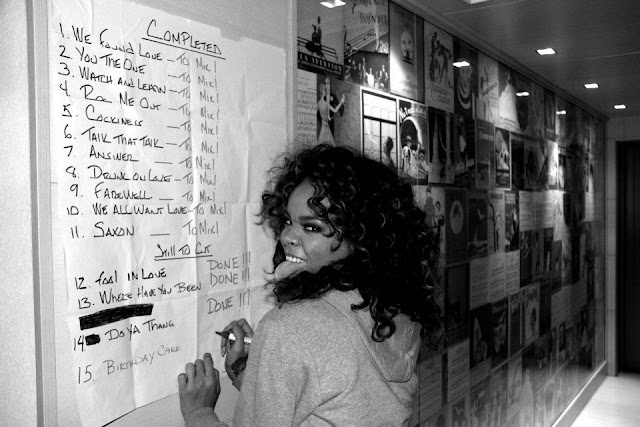 COMPLETED
1. WE FOUND LOVE - TO MIX!
2. YOU THE ONE - TO MIX!
3. WATCH AND LEARN - TO MIX!
4. ROC ME OUT - TO MIX!
5. COCKINESS - TO MIX!
6. TALK THAT TALK - TO MIX!
7. ANSWER - TO MIX!
8. DRUNK ON LOVE - TO MIX!
9. FAREWELL - TO MIX!
10. WE ALL WANT LOVE - TO MIX!
11. SAXON - TO MIX!
STILL TO CUT
12. FOOL IN LOVE DONE!!!
13. WHERE HAVE YOU BEEN DONE!!!
14. DO YA THANG DONE!!!
15. BIRTHDAY CAKE